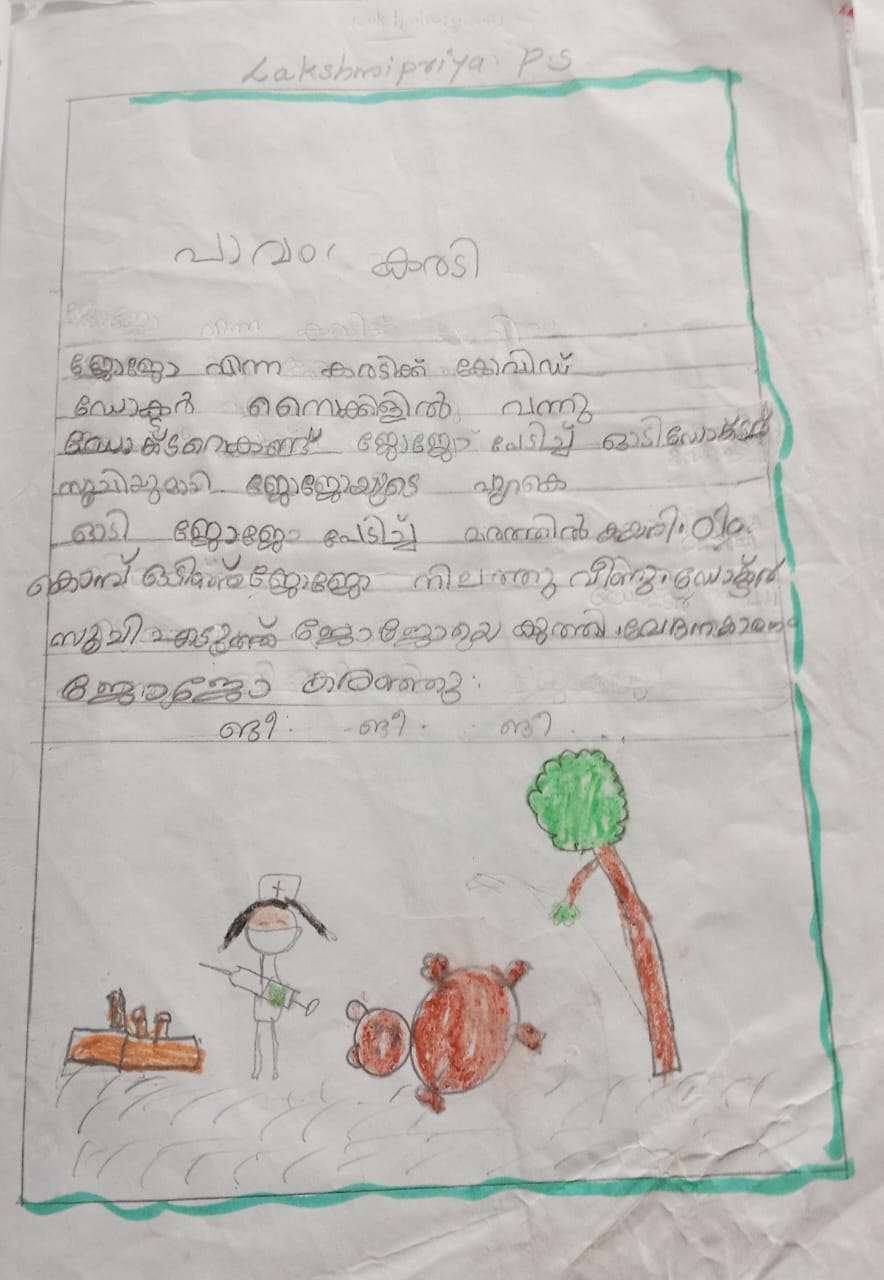 Lakshmipriya. P.S
പാവം കരടി
ജോജോ എന്ന കരടിക്ക് കോവിഡ്
ഡോക്ടർ സൈക്കിളിൽ വന്നു
ഡോക്ടറെകണ്ട് ജോജോ പേടിച്ച് ഓടി ഡോക്ടർ
സൂചിയുമായി ജോജോയുടെ പുറകെ
ഓടി ജോജോ പേടിച്ച് മരത്തിൽ കയറി.
കൊമ്പ് ഒടിഞ്ഞ് ജോജോ നിലത്തു വീണു. ഡോക്ടർ
സൂചി എടുത്ത് ജോജോയെ കുത്തി. വേദനകാരണം
ജോജോ കരഞ്ഞു.
ങീ. ങീ. ങീ....